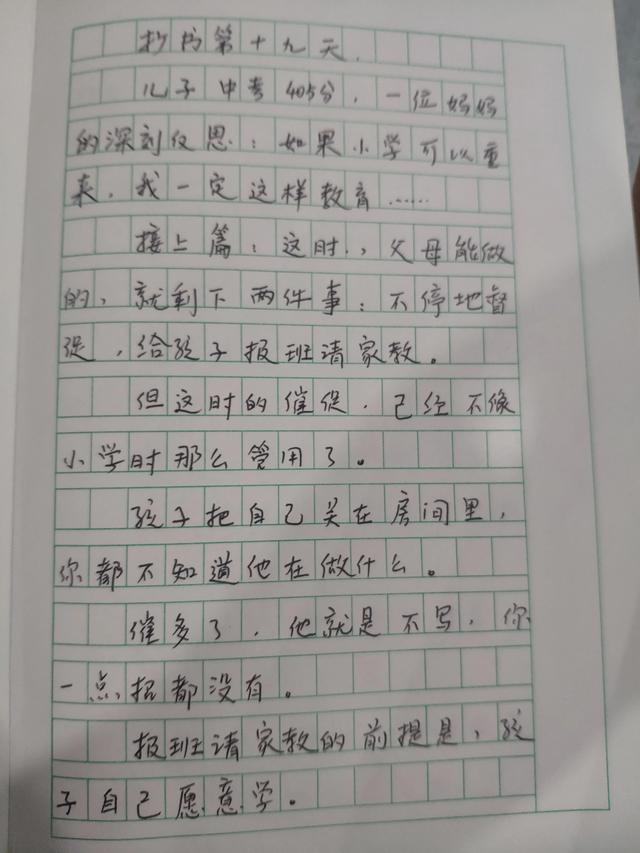 抄书第十九天.
儿子中考405分，一位妈妈
的深刻反思：如果小学可以重
来，我一定这样教育……
接上篇：这时，父母能做
的，就剩下两件事：不停地督
促，给孩子报班请家教。
但这时的催促，已经不像
小学时那么管用了。
孩子把自己关在房间里，
你都不知道他在做什么。
催多了，他就是不写，你
一点招都没有。
报班请家教的前提是，孩
子自己愿意学。